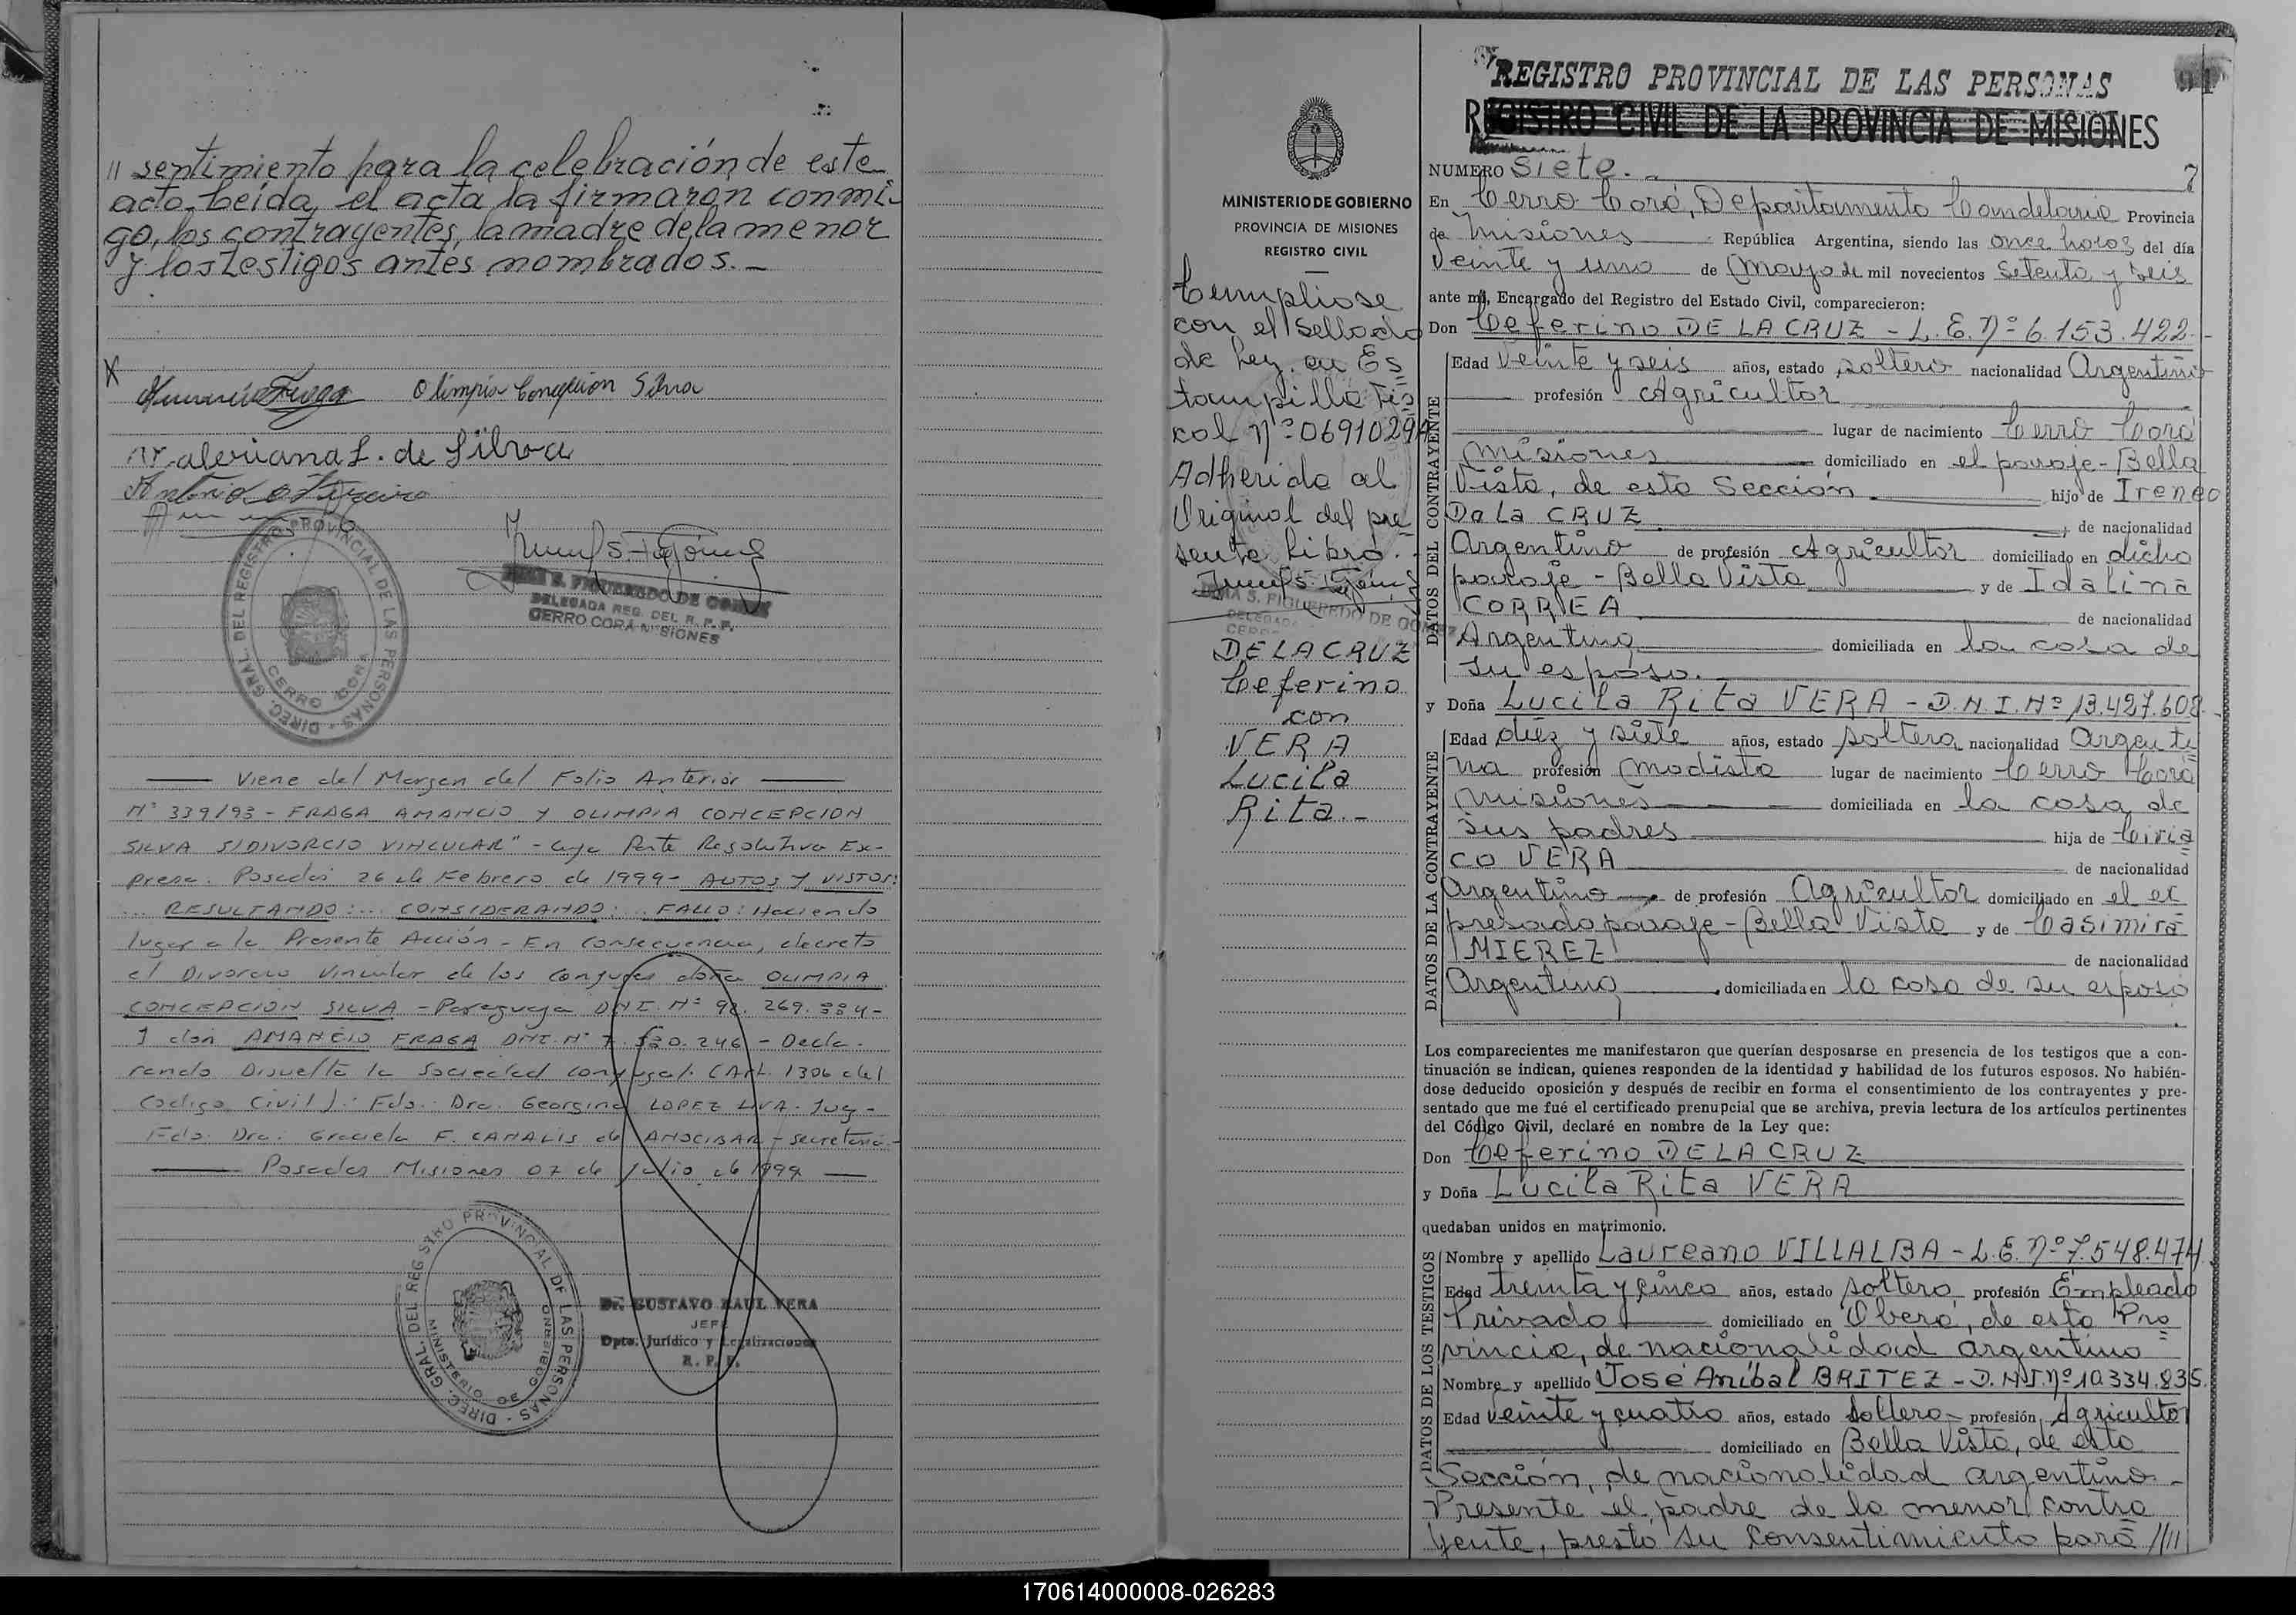 // sentimiento para la celebración de este
acto. Leída el acta la firmaron conmi-
go, los contrayentes, la madre de la menor
y los testigos antes nombrados.-
X
Olimpia Concepcion Silva
Valeriana L. de Silva
DELEGADA REG. DEL R. P. P.
CERRO CORÁ MISIONES
DIREC. GRAL. DEL REGISTRO PROVINCIAL DE LAS PERSONAS
CERRO CORA
Viene del Margen del Folio Anterior
N° 339/93 - FRAGA AMANCIO Y OLIMPIA CONCEPCION
SILVA S/DIVORCIO VINCULAR" - cuya Parte Resolutiva Ex-
presa: Posadas 26 de Febrero de 1999 - AUTOS Y VISTOS:
... RESULTANDO:... CONSIDERANDO:... FALLO: Haciendo
lugar a la Presente Acción - En consecuencia, decreto
el Divorcio Vincular de los conyuges doña OLIMPIA
CONCEPCION SILVA - Paraguaya DNI. N° 92.269.334-
Y don AMANCIO FRAGA DNI. N° 7.530.246 - Decla-
rando Disuelta la Sociedad conyugal. (Art. 1306 del
Codigo Civil). Fdo. Dra. Georgina LOPEZ LIVA. Juez -
Fdo. Dra. Graciela F. CANALIS de ANOCIBAR - secretaria.-
Posadas Misiones 07 de Julio de 1999
DIREC. GRAL. DEL REGISTRO PROVINCIAL DE LAS PERSONAS
MINISTERIO DE GOBIERNO
Dr. GUSTAVO RAUL VERA
JEFE
Dpto. Jurídico y Legalizaciones
R. P. P.
MINISTERIO DE GOBIERNO
PROVINCIA DE MISIONES
REGISTRO CIVIL
Cumpliose
con el sellado
de Ley, en Es
tampilla Fis
cal N° 0691029A
Adherida al
Original del pre
sente Libro.-
IRMA S. FIGUEREDO DE GOMEZ
DELEGADA
DE LA CRUZ
Ceferino
con
VERA
Lucila
Rita.-
REGISTRO PROVINCIAL DE LAS PERSONAS
REGISTRO CIVIL DE LA PROVINCIA DE MISIONES
NUMERO Siete.- 7
En Cerro Corá, Departamento Candelaria Provincia
de Misiones República Argentina, siendo las once horas del día
Veinte y uno de Mayo de mil novecientos setenta y seis
ante mí, Encargado del Registro del Estado Civil, comparecieron:
Don Ceferino DE LA CRUZ - L.E. N° 6.153.422.-
DATOS DEL CONTRAYENTE
Edad Veinte y seis años, estado soltero nacionalidad Argentino
profesión Agricultor
lugar de nacimiento Cerro Corá
Misiones domiciliado en el paraje - Bella
Vista, de esta Sección hijo de Ireneo
De La CRUZ, de nacionalidad
Argentino de profesión Agricultor domiciliado en dicho
paraje - Bella Vista y de Idalina
CORREA de nacionalidad
Argentina domiciliada en la casa de
su esposo.
y Doña Lucila Rita VERA - D.N.I. N° 13.427.608.-
DATOS DE LA CONTRAYENTE
Edad diez y siete años, estado soltera nacionalidad Argenti
na profesión Modista lugar de nacimiento Cerro Corá
Misiones domiciliada en la casa de
sus padres hija de Ciria
co VERA de nacionalidad
Argentino de profesión Agricultor domiciliado en el ex
presado paraje - Bella Vista y de Casimira
MIEREZ de nacionalidad
Argentina, domiciliada en la casa de su esposo
Los comparecientes me manifestaron que querían desposarse en presencia de los testigos que a con-
tinuación se indican, quienes responden de la identidad y habilidad de los futuros esposos. No habién-
dose deducido oposición y después de recibir en forma el consentimiento de los contrayentes y pre-
sentado que me fué el certificado prenupcial que se archiva, previa lectura de los artículos pertinentes
del Código Civil, declaré en nombre de la Ley que:
Don Ceferino DE LA CRUZ
y Doña Lucila Rita VERA
quedaban unidos en matrimonio.
DATOS DE LOS TESTIGOS
Nombre y apellido Laureano VILLALBA - L.E. N° 7.548.474.
Edad treinta y cinco años, estado soltero profesión Empleado
Privado domiciliado en Oberá, de esta Pro
vincia, de nacionalidad argentino
Nombre y apellido José Aníbal BRITEZ - D.N.I N° 10.334.835.
Edad veinte y cuatro años, estado soltero - profesión Agricultor
domiciliado en Bella Vista, de esta
Sección, de nacionalidad argentino -
Presente el padre de la menor contra
yente, prestó su consentimiento para ////
170614000008-026283